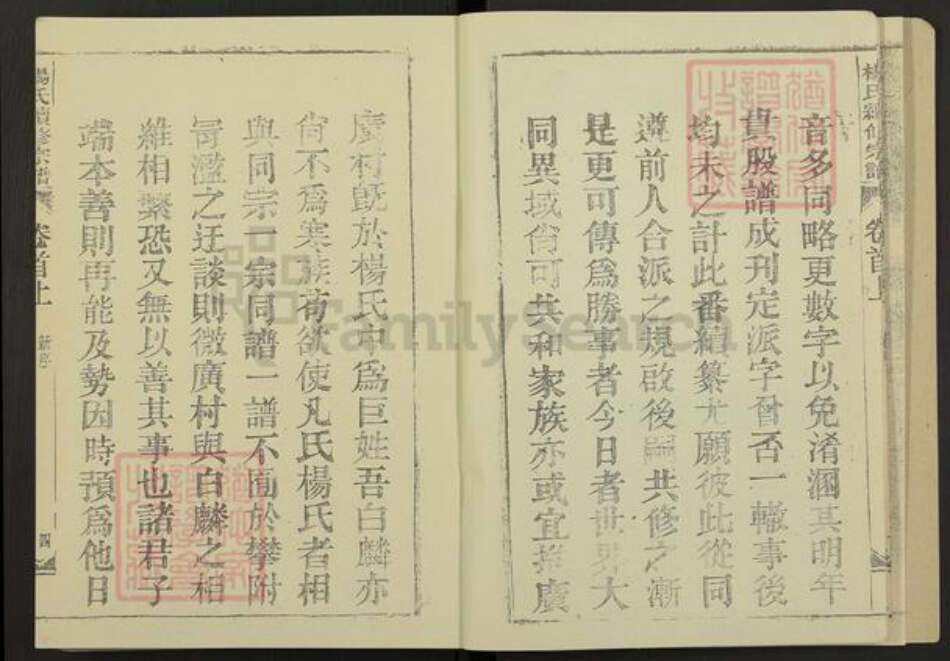 音多同略更數字以免淆溷其明年
貴股譜成刊定派字曾否一轍事後
均未之計此番續纂尤願彼此從同
遵前人合派之規啟後嗣共修之漸
是更可傳為勝事者今日者世界大
同異域尚可共和家族亦或宜推廣
廣村既於楊氏中為巨姓吾白麟亦
尚不為寒族苟欲使凡氏楊氏者相
與同宗一宗同譜一譜不囿於攀附
苛濫之迂談則微廣村與白麟之相
維相繫恐又無以善其事也諸君子
端本善則再能及勢因時預為他日
楊氏續修宗譜 卷首上 新序 四
FamilySearch